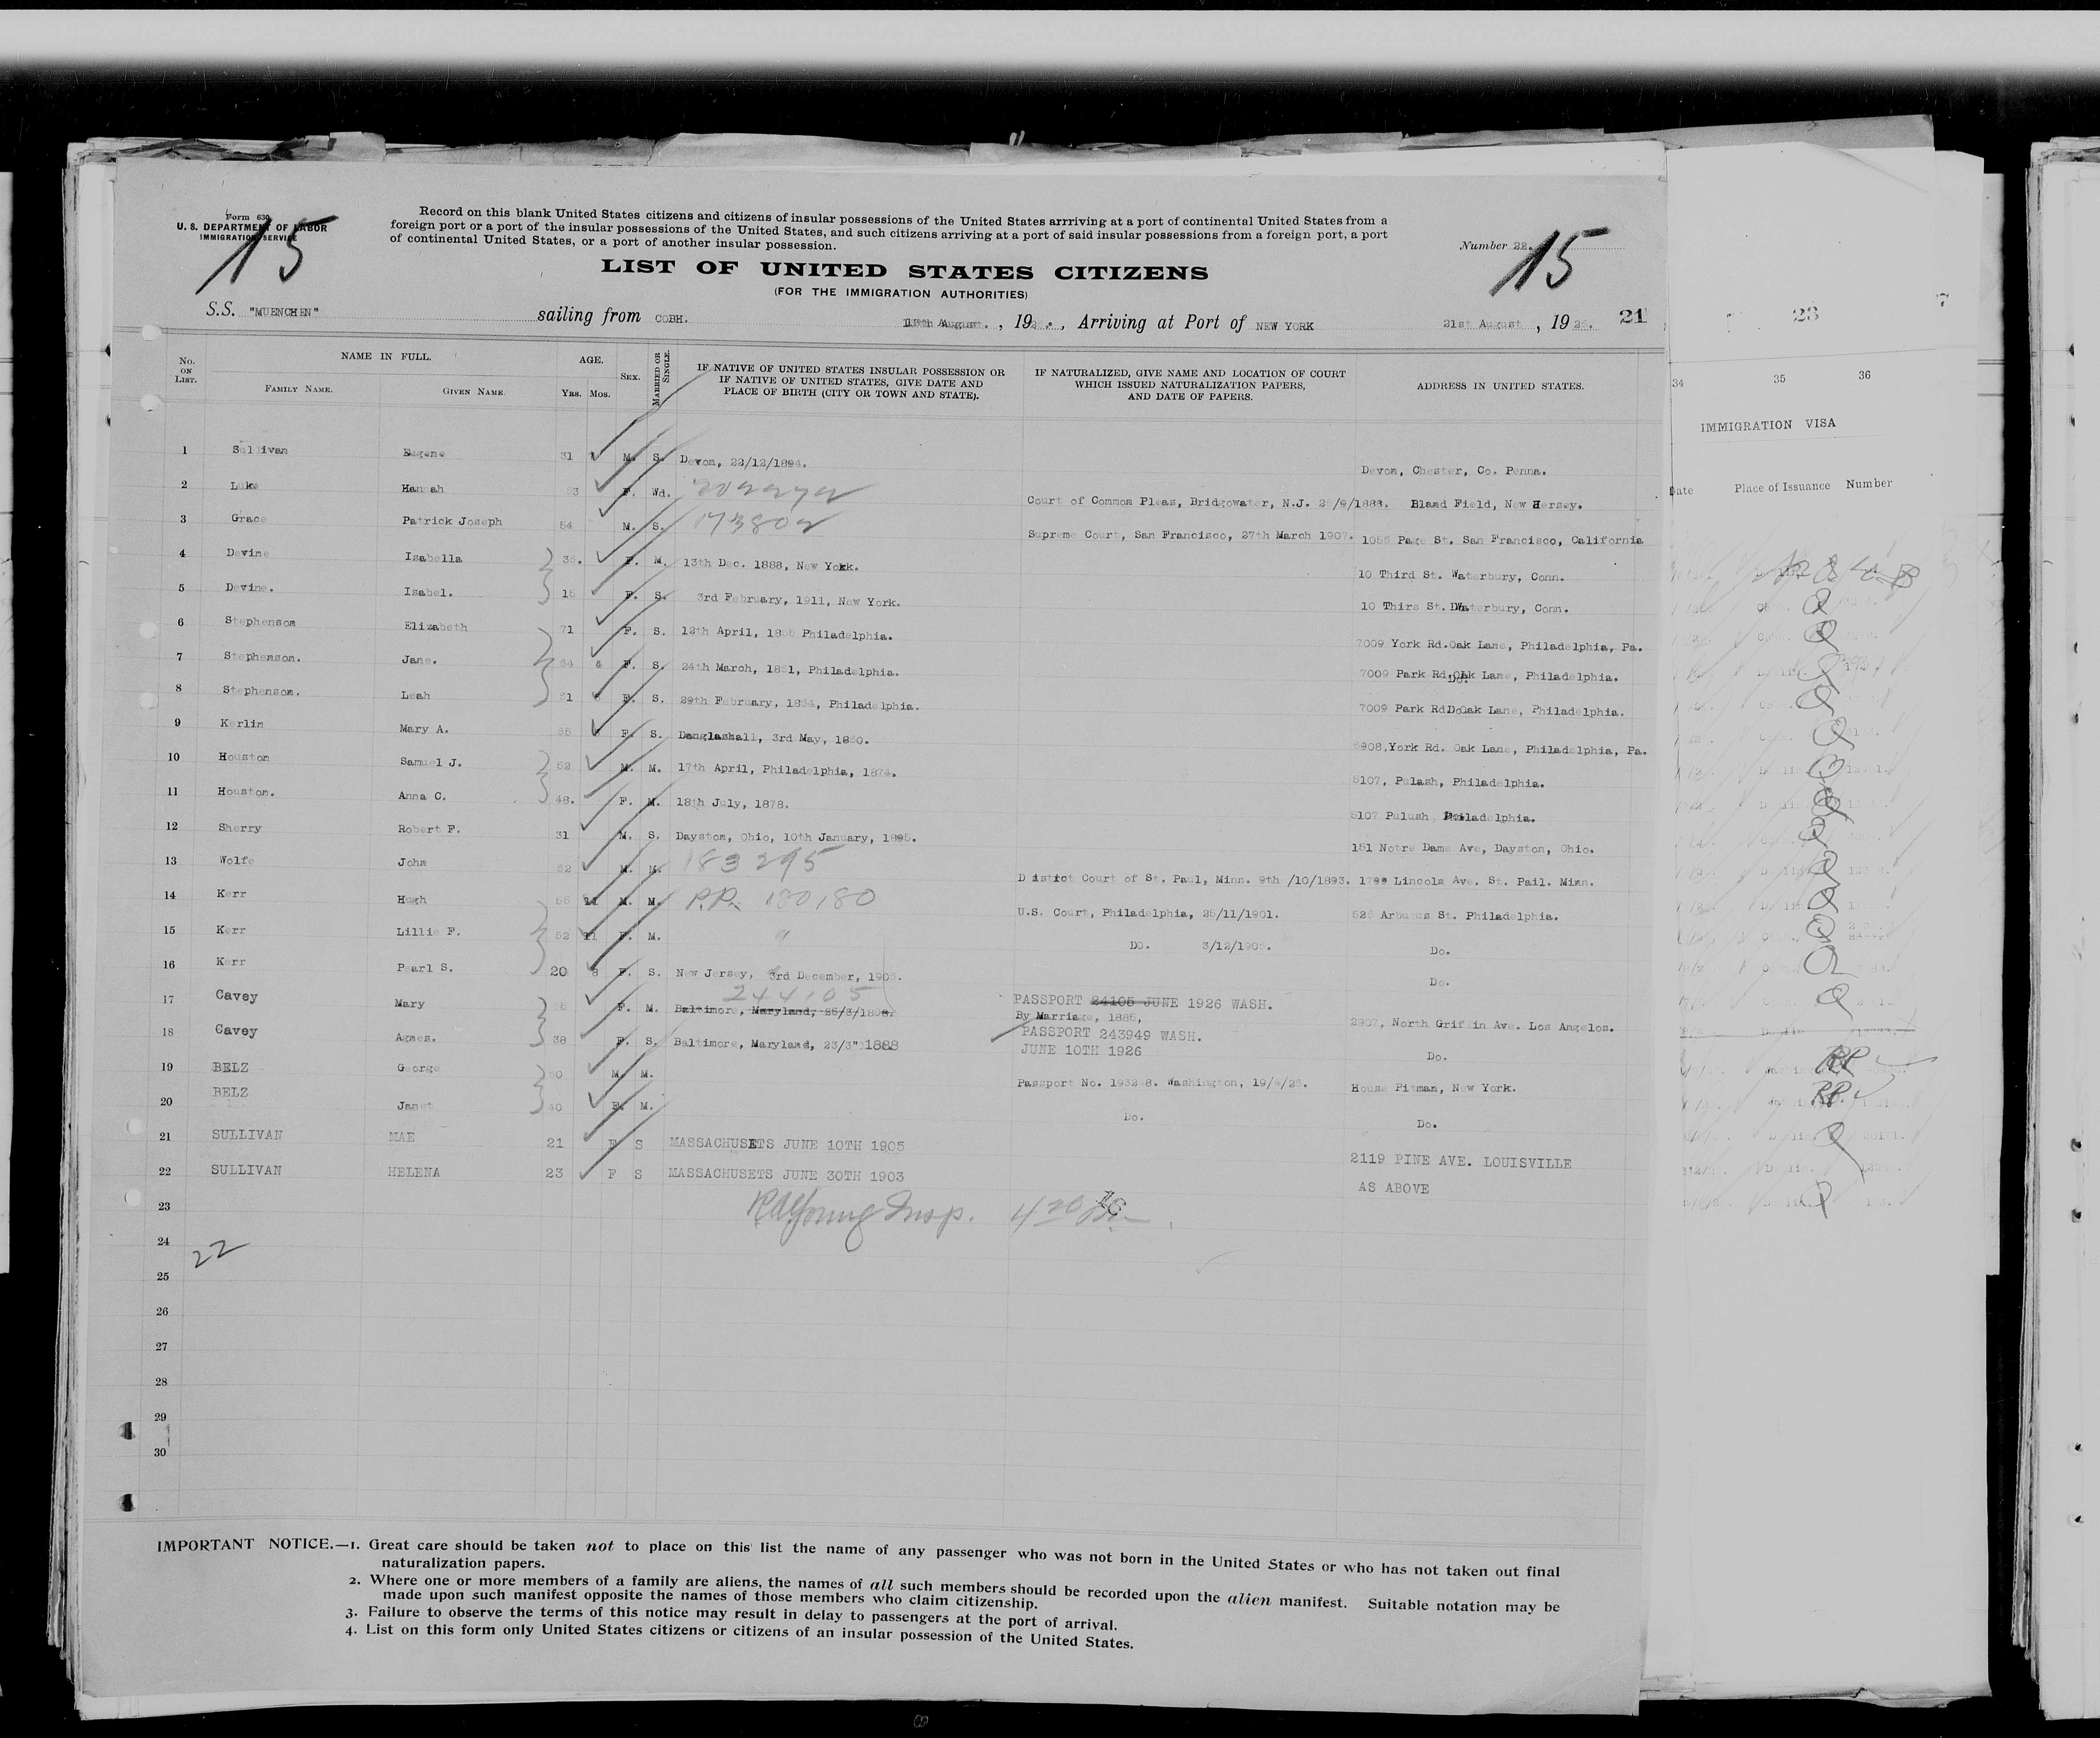 Form 630
U. S. DEPARTMENT OF LABOR
IMMIGRATION SERVICE
15
Record on this blank United States citizens and citizens of insular possessions of the United States arrriving at a port of continental United States from a
foreign port or a port of the insular possessions of the United States, and such citizens arriving at a port of said insular possessions from a foreign port, a port
of continental United States, or a port of another insular possession.
Number 22.
15
LIST OF UNITED STATES CITIZENS
(FOR THE IMMIGRATION AUTHORITIES)
S.S. "MUENCHEN" sailing from COBH. 13th August. , 19 , Arriving at Port of NEW YORK 21st August , 1926. 21
23
No. ON LIST. NAME IN FULL. FAMILY NAME. GIVEN NAME. AGE. YRS. MOS. SEX. MARRIED OR SINGLE.
IF NATIVE OF UNITED STATES INSULAR POSSESSION OR
IF NATIVE OF UNITED STATES, GIVE DATE AND
PLACE OF BIRTH (CITY OR TOWN AND STATE).
IF NATURALIZED, GIVE NAME AND LOCATION OF COURT
WHICH ISSUED NATURALIZATION PAPERS,
AND DATE OF PAPERS.
ADDRESS IN UNITED STATES.
34 35 36
IMMIGRATION VISA
Date Place of Issuance Number
1 Sullivan Eugene 31 M. S. Devon, 22/12/1894. Devon, Chester, Co. Penna.
2 Luke Hannah 63 F. Wd. Court of Common Pleas, Bridgowater, N.J. 25/9/1888. Bland Field, New Hersey.
3 Grace Patrick Joseph 54 M. S. 173802 Supreme Court, San Francisco, 27th March 1907. 1055 Page St. San Francisco, California
4 Devine Isabella 36. F. M. 13th Dec. 1888, New York. 10 Third St. Waterbury, Conn.
5 Devine. Isabel. 15 F. S. 3rd February, 1911, New York. 10 Thirs St. Waterbury, Conn.
6 Stephenson Elizabeth 71 F. S. 12th April, 1855 Philadelphia. 7009 York Rd.Oak Lane, Philadelphia, Pa.
7 Stephenson. Jane. 64 F. S. 24th March, 1861, Philadelphia. 7009 Park Rd.Oak Lane, Philadelphia.
8 Stephenson. Leah 61 F. S. 29th February, 1864, Philadelphia. 7009 Park Rd Oak Lane, Philadelphia.
9 Kerlin Mary A. 66 F. S. Danglashall, 3rd May, 1860. 5908,York Rd. Oak Lane, Philadelphia, Pa.
10 Houston Samuel J. 52 M. M. 17th April, Philadelphia, 1874. 5107, Pulash, Philadelphia.
11 Houston. Anna C. 48. F. M. 18th July, 1878. 5107 Pulush Philadelphia.
12 Sherry Robert F. 31 M. S. Dayston, Ohio, 10th January, 1895. 151 Notre Dame Ave, Dayston, Ohio.
13 Wolfe John 52 M. M. 183295 District Court of St. Paul, Minn. 9th /10/1893. 1799 Lincoln Ave. St. Pail. Minn.
14 Kerr Hugh 55 11 M. M. P.P. 180180 U.S. Court, Philadelphia, 25/11/1901. 526 Arbutus St. Philadelphia.
15 Kerr Lillie F. 52 11 F. M. Do. 3/12/1905. Do.
16 Kerr Pearl S. 20 8 F. S. New Jersey, 3rd December, 1905. Do.
17 Cavey Mary F. M. 244105 Baltimore, Maryland, 25/3/1808. PASSPORT 24105 JUNE 1926 WASH.
By Marriage, 1885, 2907, North Griffin Ave. Los Angelos.
18 Cavey Agnes. 38 F. S. Baltimore, Maryland, 23/3" 1888 PASSPORT 243949 WASH.
JUNE 10TH 1926 Do.
19 BELZ George 50 M. M. Passport No. 193248. Washington, 19/4/26. House Pitman, New York.
20 BELZ Janet 40 F. M. Do. Do.
21 SULLIVAN MAE 21 F S MASSACHUSETS JUNE 10TH 1905 2119 PINE AVE. LOUISVILLE
22 SULLIVAN HELENA 23 F S MASSACHUSETS JUNE 30TH 1903 AS ABOVE
23
24
22
25
26
27
28
29
30
IMPORTANT NOTICE.—1. Great care should be taken not to place on this list the name of any passenger who was not born in the United States or who has not taken out final
naturalization papers.
2. Where one or more members of a family are aliens, the names of all such members should be recorded upon the alien manifest. Suitable notation may be
made upon such manifest opposite the names of those members who claim citizenship.
3. Failure to observe the terms of this notice may result in delay to passengers at the port of arrival.
4. List on this form only United States citizens or citizens of an insular possession of the United States.